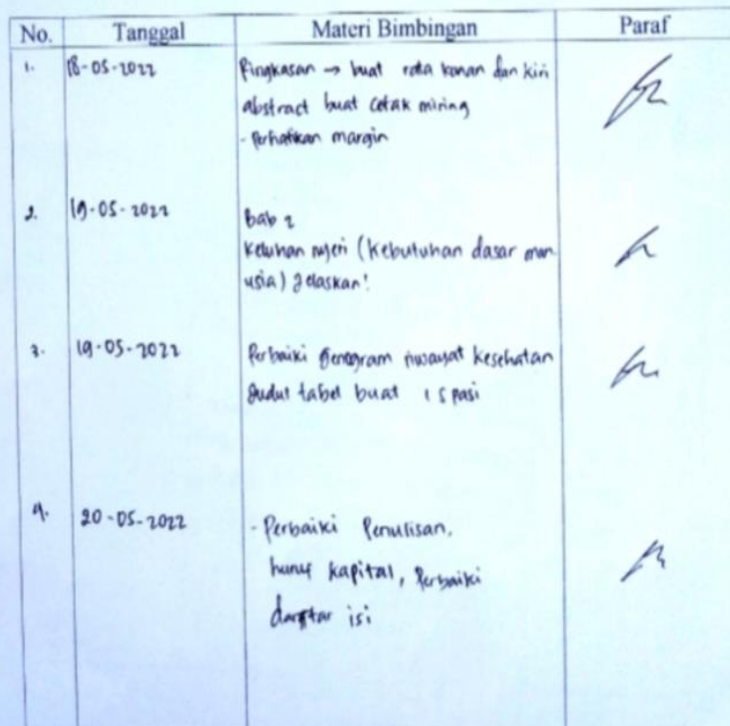 No. Tanggal Materi Bimbingan Paraf
1. 18-05-2022 Ringkasan → buat rata kanan dan kiri
abstract buat cetak miring
- Perhatikan margin
2. 19-05-2022 Bab 2
Keluhan nyeri (Kebutuhan dasar man
usia) Jelaskan!
3. 19-05-2022 Perbaiki Genogram riwayat kesehatan
Judul tabel buat 1 spasi
4. 20-05-2022 - Perbaiki Penulisan,
huruf kapital, Perbaiki
daftar isi